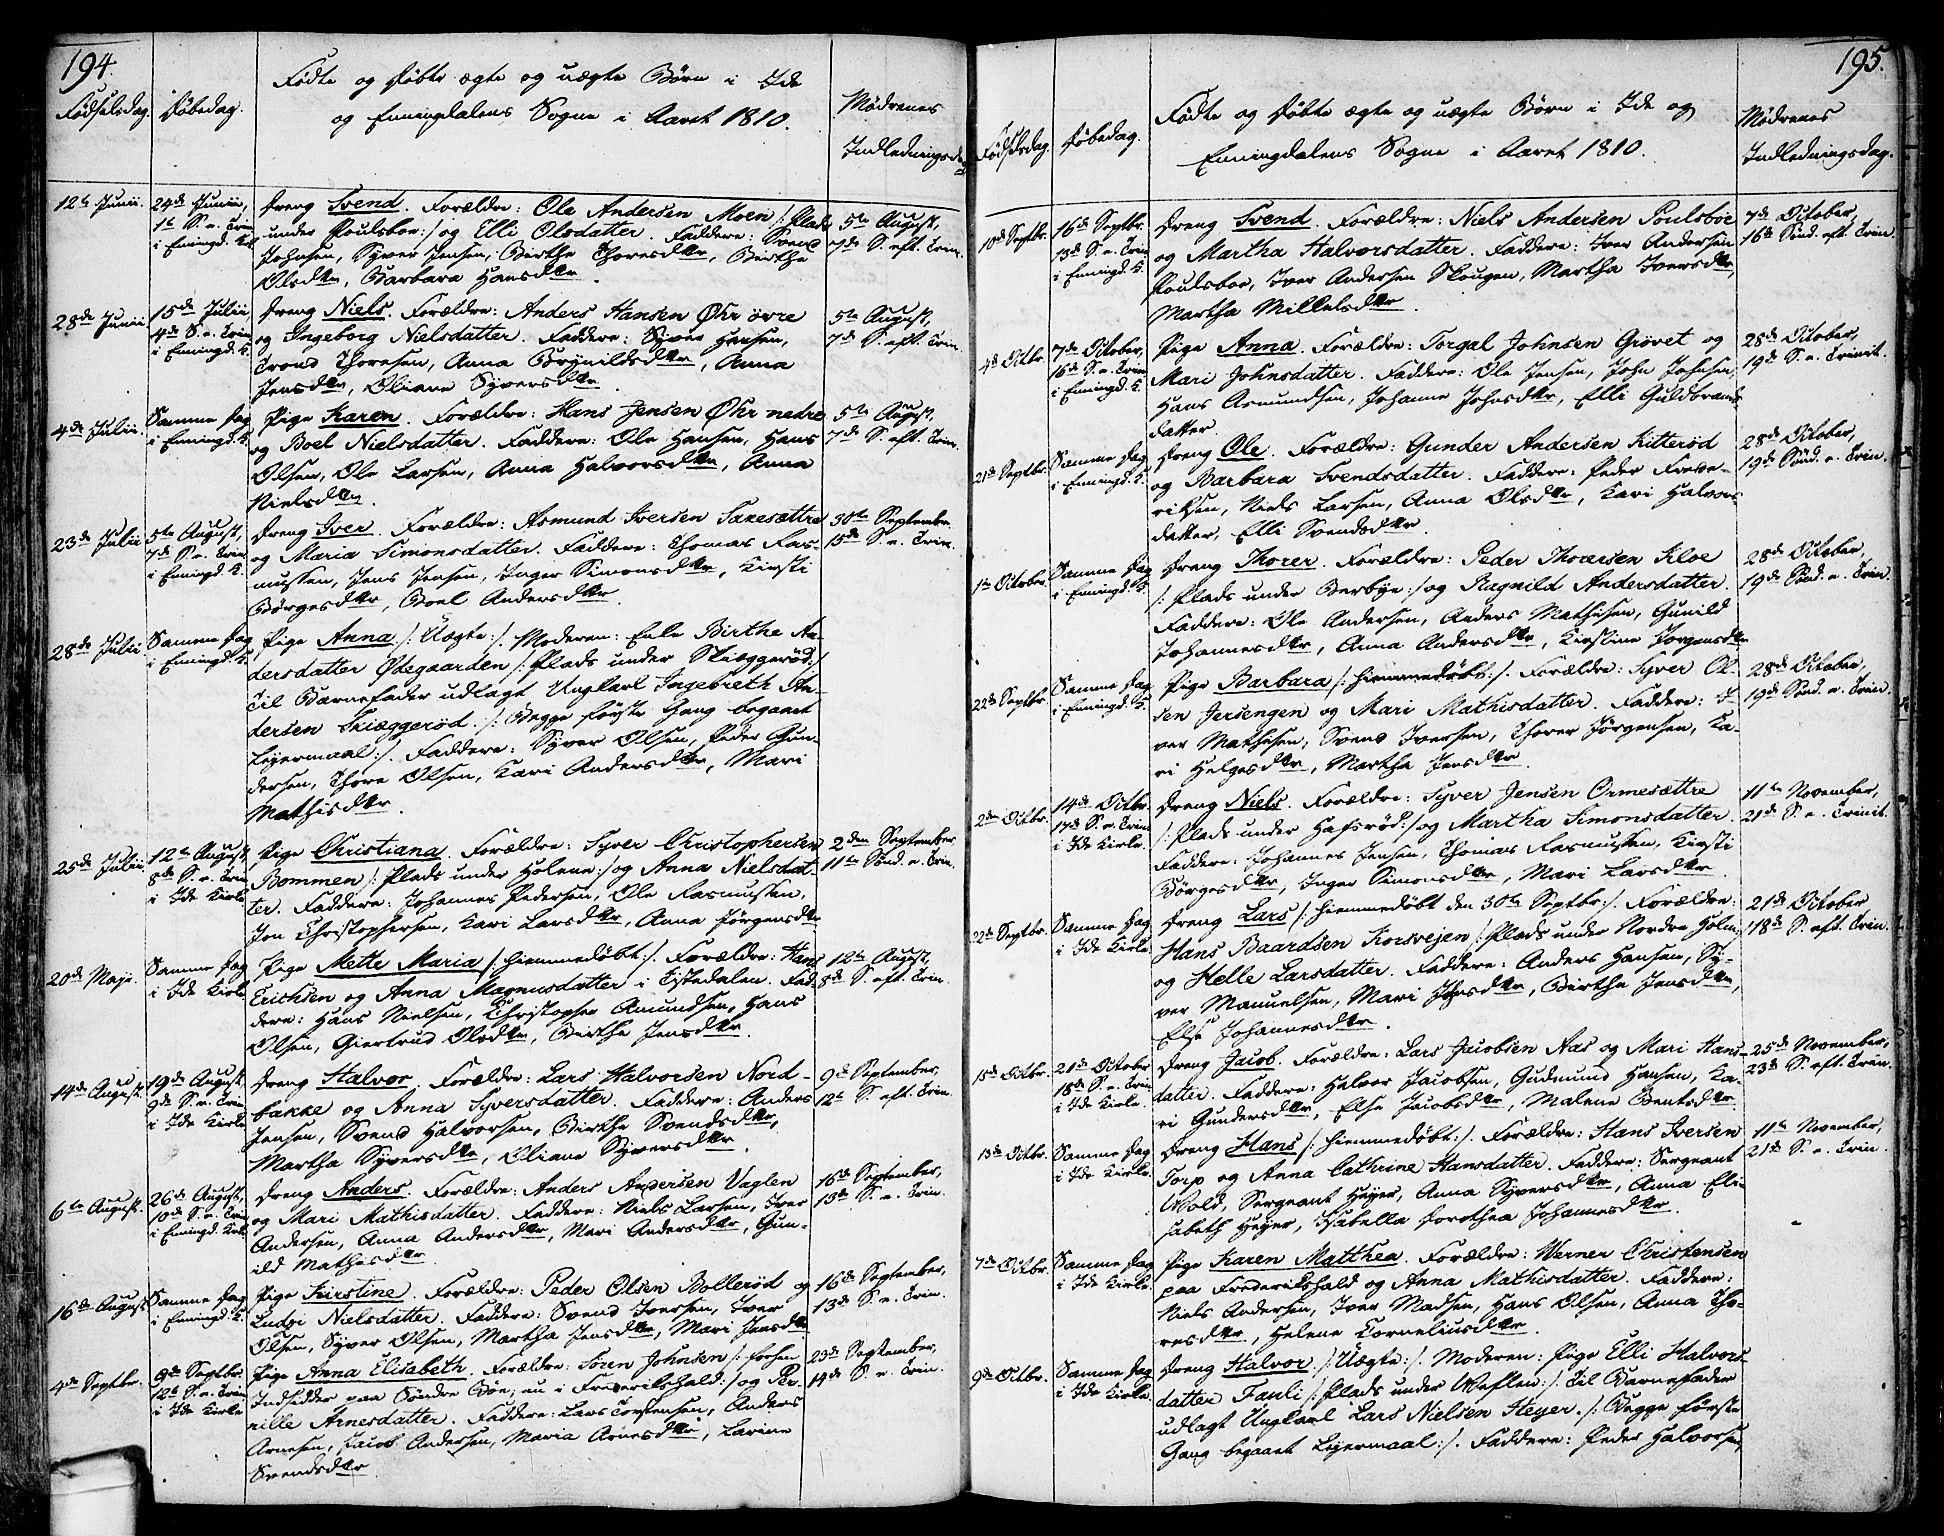 194.
Fødte og døbte ægte og uægte Børn i Ide
og Enningdalens Sogne i Aaret 1810.
Fødselsdag. Døbedag.
Mødrenes
Indledningsdag
12te Junii. 24de Junii,
1te S. e. Trin.
i Enningd. K.
Dreng Svend. Forældre: Ole Andersen Moen /: Plads
under Poulsboe :/ og Elli Olsdatter. Faddere: Svend
Johnsen, Syver Jensen, Birthe Thoresdtr, Birthe
Olsdtr, Barbara Hansdtr.
5te August,
7de S. eft. Trin.
28de Junii 15de Julii,
4de S. e. Trin.
i Enningd. K.
Dreng Niels. Forældre: Anders Hansen Øhr øvre
og Ingeborg Nielsdatter. Faddere: Syver Hansen,
Trond Thoresen, Anna Brynildsdtr, Anna
Jensdtr, Oliane Syversdtr.
5te August,
7de S. eft. Trin.
4de Julii. Samme Dag
i Enningd. K.
Pige Karen. Forældre: Hans Jensen Øhr nedre
og Boel Nielsdatter. Faddere: Ole Hansen, Hans
Olsen, Ole Larsen, Anna Halvorsdtr, Anna
Nielsdtr.
5te August,
7de S. eft. Trin.
23de Julii 5te August,
7de S. e. Trin.
i Enningd. K.
Dreng Iver. Forældre: Asmund Iversen Saxesættre
og Maria Simonsdatter. Faddere: Thomas Ras-
mussen, Jens Jensen, Inger Simonsdtr, Kirsti
Børgesdtr, Boel Andersdtr.
30te September.
15de S. e. Trin.
28de Julii Samme Dag
i Enningd. K.
Pige Anna /: Uægte :/. Moderen: Enke Birthe An-
dersdatter Ødegaarden /: Plads under Skiæggerød :/
Til Barnefader udlagt Ungkarl Ingebreth An-
dersen Skiæggerød. /: Begge første Gang begaaet
Leiermaal :/. Faddere: Syver Olsen, Peder Gun-
dersen, Thore Olsen, Kari Andersdtr, Mari
Mathisdtr.
25de Julii 12te August,
8de S. e. Trin.
i Ide Kirke
Pige Christiana. Forældre: Syver Christophersen
Bommen /: Plads under Holene :/ og Anna Nielsdat-
ter. Faddere: Johannes Pedersen, Ole Rasmussen,
Jon Christophersen, Kari Larsdtr, Anna Jørgensdtr
2den September
11te Sønd. e. Trin.
20de Maji. Samme Dag
i Ide Kirke
Pige Mette Maria /: hiemmedøbt :/. Forældre: Hans
Erichsen og Anna Magnusdatter i Tistedalen. Fad-
dere: Hans Nielsen, Christopher Amundsen, Hans
Olsen, Giertrud Olsdtr, Birthe Jensdtr.
12te August,
8de S. eft. Trin.
14de August. 19de August,
9de S. e. Trin.
i Ide Kirke
Dreng Halvor. Forældre: Lars Halvorsen Nord-
bakke og Anna Syversdatter. Faddere: Anders
Jensen, Svend Halvorsen, Birthe Svendsdtr,
Martha Syversdtr, Oliane Syversdtr.
9de September,
12te S. eft. Trin.
6te August. 26de August,
10de S. e. Trin.
i Enningd. Kirk.
Dreng Anders. Forældre: Anders Andersen Vaglen
og Mari Mathisdatter. Faddere: Niels Larsen, Iver
Andersen, Anna Andersdtr, Mari Andersdtr, Gun-
ild Mathisdtr.
16de September,
13de S. e. Trin.
16de August Samme Dag
i Enningd. K.
Pige Kirstine. Forældre: Peder Olsen Bollerød og
Ludvi Nielsdatter. Faddere: Svend Iversen, Iver
Olsen, Syver Olsen, Martha Jensdtr, Mari Jensdtr
16de September,
13de S. e. Trin.
4de Septbr. 9de Septbr.
12te S. e. Trin.
i Ide Kirke
Pige Anna Elisabeth. Forældre: Søren Johnsen /: forhen
Indsidder paa Søndre Boe, nu i Frederikshald :/ og Per-
nille Arnesdatter. Faddere: Lars Torstensen, Anders
Arnesen, Jacob Andersen, Maria Arnesdtr, Larine
Svendsdtr
23de September,
14de S. e. Trin.
195.
Fødte og døbte ægte og uægte Børn i Ide og
Enningdalens Sogne i Aaret 1810.
Fødselsdag. Døbedag.
Mødrenes
Indledningsdag.
10de Septbr. 16de Septbr.
13de S. e. Trin
i Enningd. K.
Dreng Svend. Forældre: Niels Andersen Poulsboe
og Martha Halvorsdatter. Faddere: Iver Andersen
Poulsboe, Iver Andersen Skougen, Martha Iversdtr,
Martha Mikkelsdtr.
7de October,
16de Sønd. eft. Trin.
4de Octbr. 7de October,
16de S. e. Trin
i Enningd. K.
Pige Anna. Forældre: Torgal Johnsen Grøvet og
Mari Johnsdatter. Faddere: Ole Jensen, John Johnsen,
Hans Asmundsen, Johanne Johnsdtr, Elli Guldbrands-
datter.
28de October,
19de S. e. Trinit.
21de Septbr. Samme Dag
i Enningd. K.
Dreng Ole. Forældre: Gunder Andersen Kitterød
og Barbara Svendsdatter. Faddere: Peder Frede-
riksen, Niels Larsen, Anna Olsdtr, Kari Halvors-
datter, Elli Svendsdtr.
28de October,
19de Sønd. e. Trin.
1te Octobr. Samme Dag
i Enningd. K.
Dreng Thorer. Forældre: Peder Thorersen Kloe
/: Plads under Berbye :/ og Ragnild Andersdatter.
Faddere: Ole Andersen, Anders Mathisen, Gunild
Johannesdtr, Anna Andersdtr, Kirstine Jørgensdtr
28de October,
19de Sønd. e. Trin.
22de Septbr. Samme Dag
i Enningd. K.
Pige Barbara /: hiemmedøbt :/. Forældre: Syver Ol-
sen Jersengen og Mari Mathisdatter. Faddere: I-
ver Mathisen, Svend Iversen, Thorer Jørgensen, Ka-
ri Helgesdtr, Martha Jensdtr.
28de October,
19de Sønd. e. Trin.
2den Octbr. 14de Octbr.
17de S. e. Trin
i Ide Kirke.
Dreng Niels. Forældre: Syver Jensen Ormesættre
/: Plads under Hafsrød :/ og Martha Simonsdatter.
Faddere: Johannes Jensen, Thomas Rasmussen, Kirsti
Børgesdtr, Inger Simonsdtr, Mari Larsdtr.
11te November,
21de S. e. Trinit.
22de Septbr. Samme Dag
i Ide Kirke.
Dreng Lars /: hiemmedøbt den 30te Septbr :/. Forældre:
Hans Baardsen Korsvejen /: Plads under Nordre Holm :/
og Helle Larsdatter. Faddere: Anders Hansen, Sy-
ver Manuelsen, Mari Johnsdtr, Birthe Jensdtr,
Else Johannesdtr.
21de October
18de S. eft. Trin.
15de Octbr. 21de October
18de S. e. Trin
i Ide Kirke.
Dreng Jacob. Forældre: Lars Jacobsen Aas og Mari Hans-
datter. Faddere: Halvor Jacobsen, Gudmund Hansen, Ka-
ri Gundersdtr, Else Jacobsdtr, Malene Bentsdtr.
25de November,
23de S. eft. Trin.
13de Octbr. Samme Dag
i Ide Kirke.
Dreng Hans /: hiemmedøbt :/. Forældre: Hans Iversen
Torp og Anna Cathrine Hansdatter. Faddere: Sergeant
Wold, Sergeant Heyer, Anna Syversdtr, Anna Eli-
sabeth Heyer, Isabella Dorothea Johannesdtr.
11te November,
21de S. e. Trin.
7de Octbr. Samme Dag
i Ide Kirke.
Pige Karen Matthea. Forældre: Werner Christensen
paa Frederikshald og Anna Mathisdatter. Faddere:
Niels Andersen, Iver Madsen, Hans Olsen, Anna Tho-
resdtr, Helene Corneliusdtr.
9de Octbr. Samme Dag
i Ide Kirke.
Dreng Halvor /: Uægte :/. Moderen: Pige Elli Halvors-
datter Fauli /: Plads under Weflen :/. Til Barnefader
udlagt Ungkarl Lars Nielsen Heyer. /: Begge første
Gang begaaet Leiermaal :/. Faddere: Peder Halvorsen,